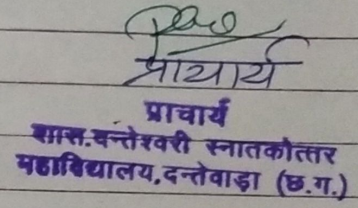 प्राचार्य
प्राचार्य
शास.दन्तेश्वरी स्नातकोत्तर
महाविद्यालय,दन्तेवाड़ा (छ.ग.)